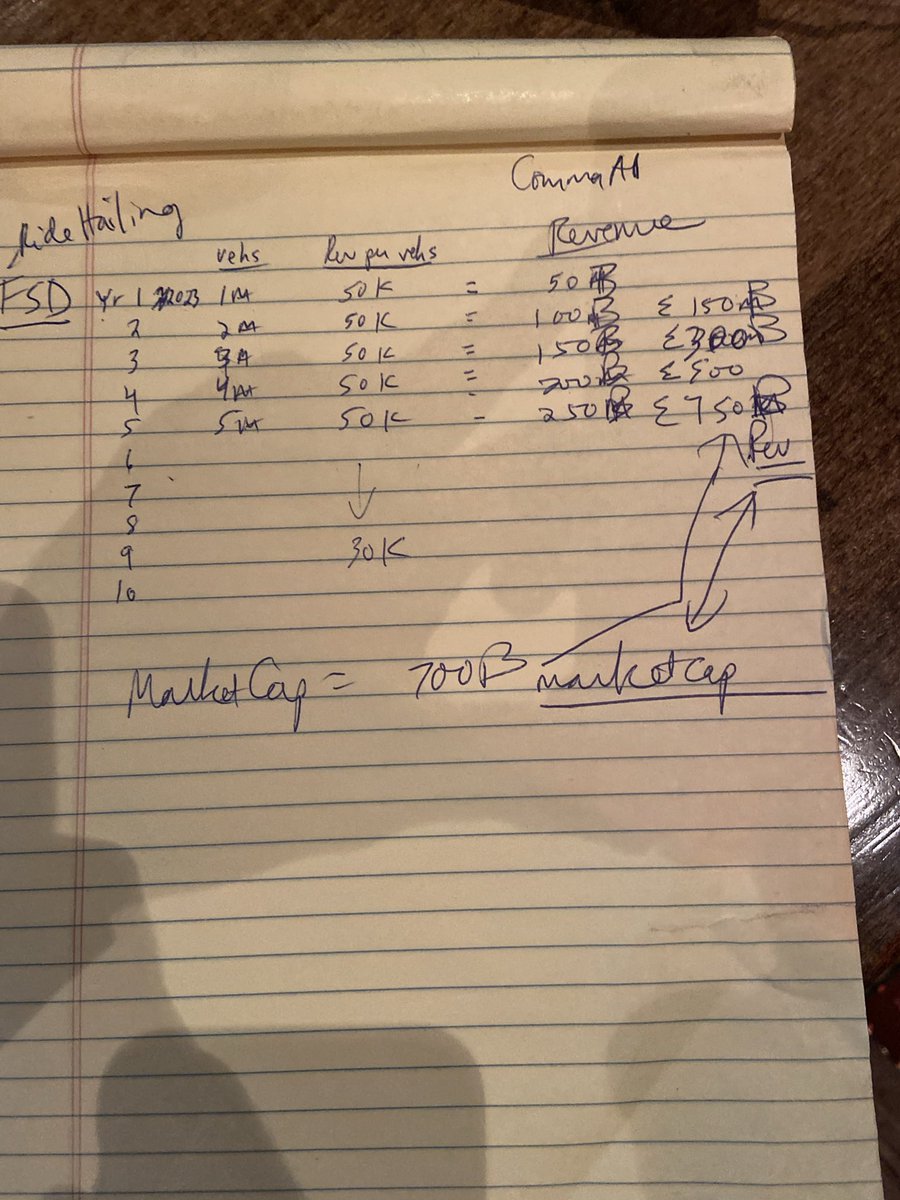 CommaAI
Ride Hailing
vehs Rev per vehs Revenue
FSD Yr 1 2023 1M 50K = 50B
2 2M 50K = 100B Σ 150B
3 3M 50K = 150B Σ 300B
4 4M 50K = 200B Σ 500
5 5M 50K = 250B Σ 750B
6 Rev
7
8
9 30K
10
MarketCap = 700B marketcap